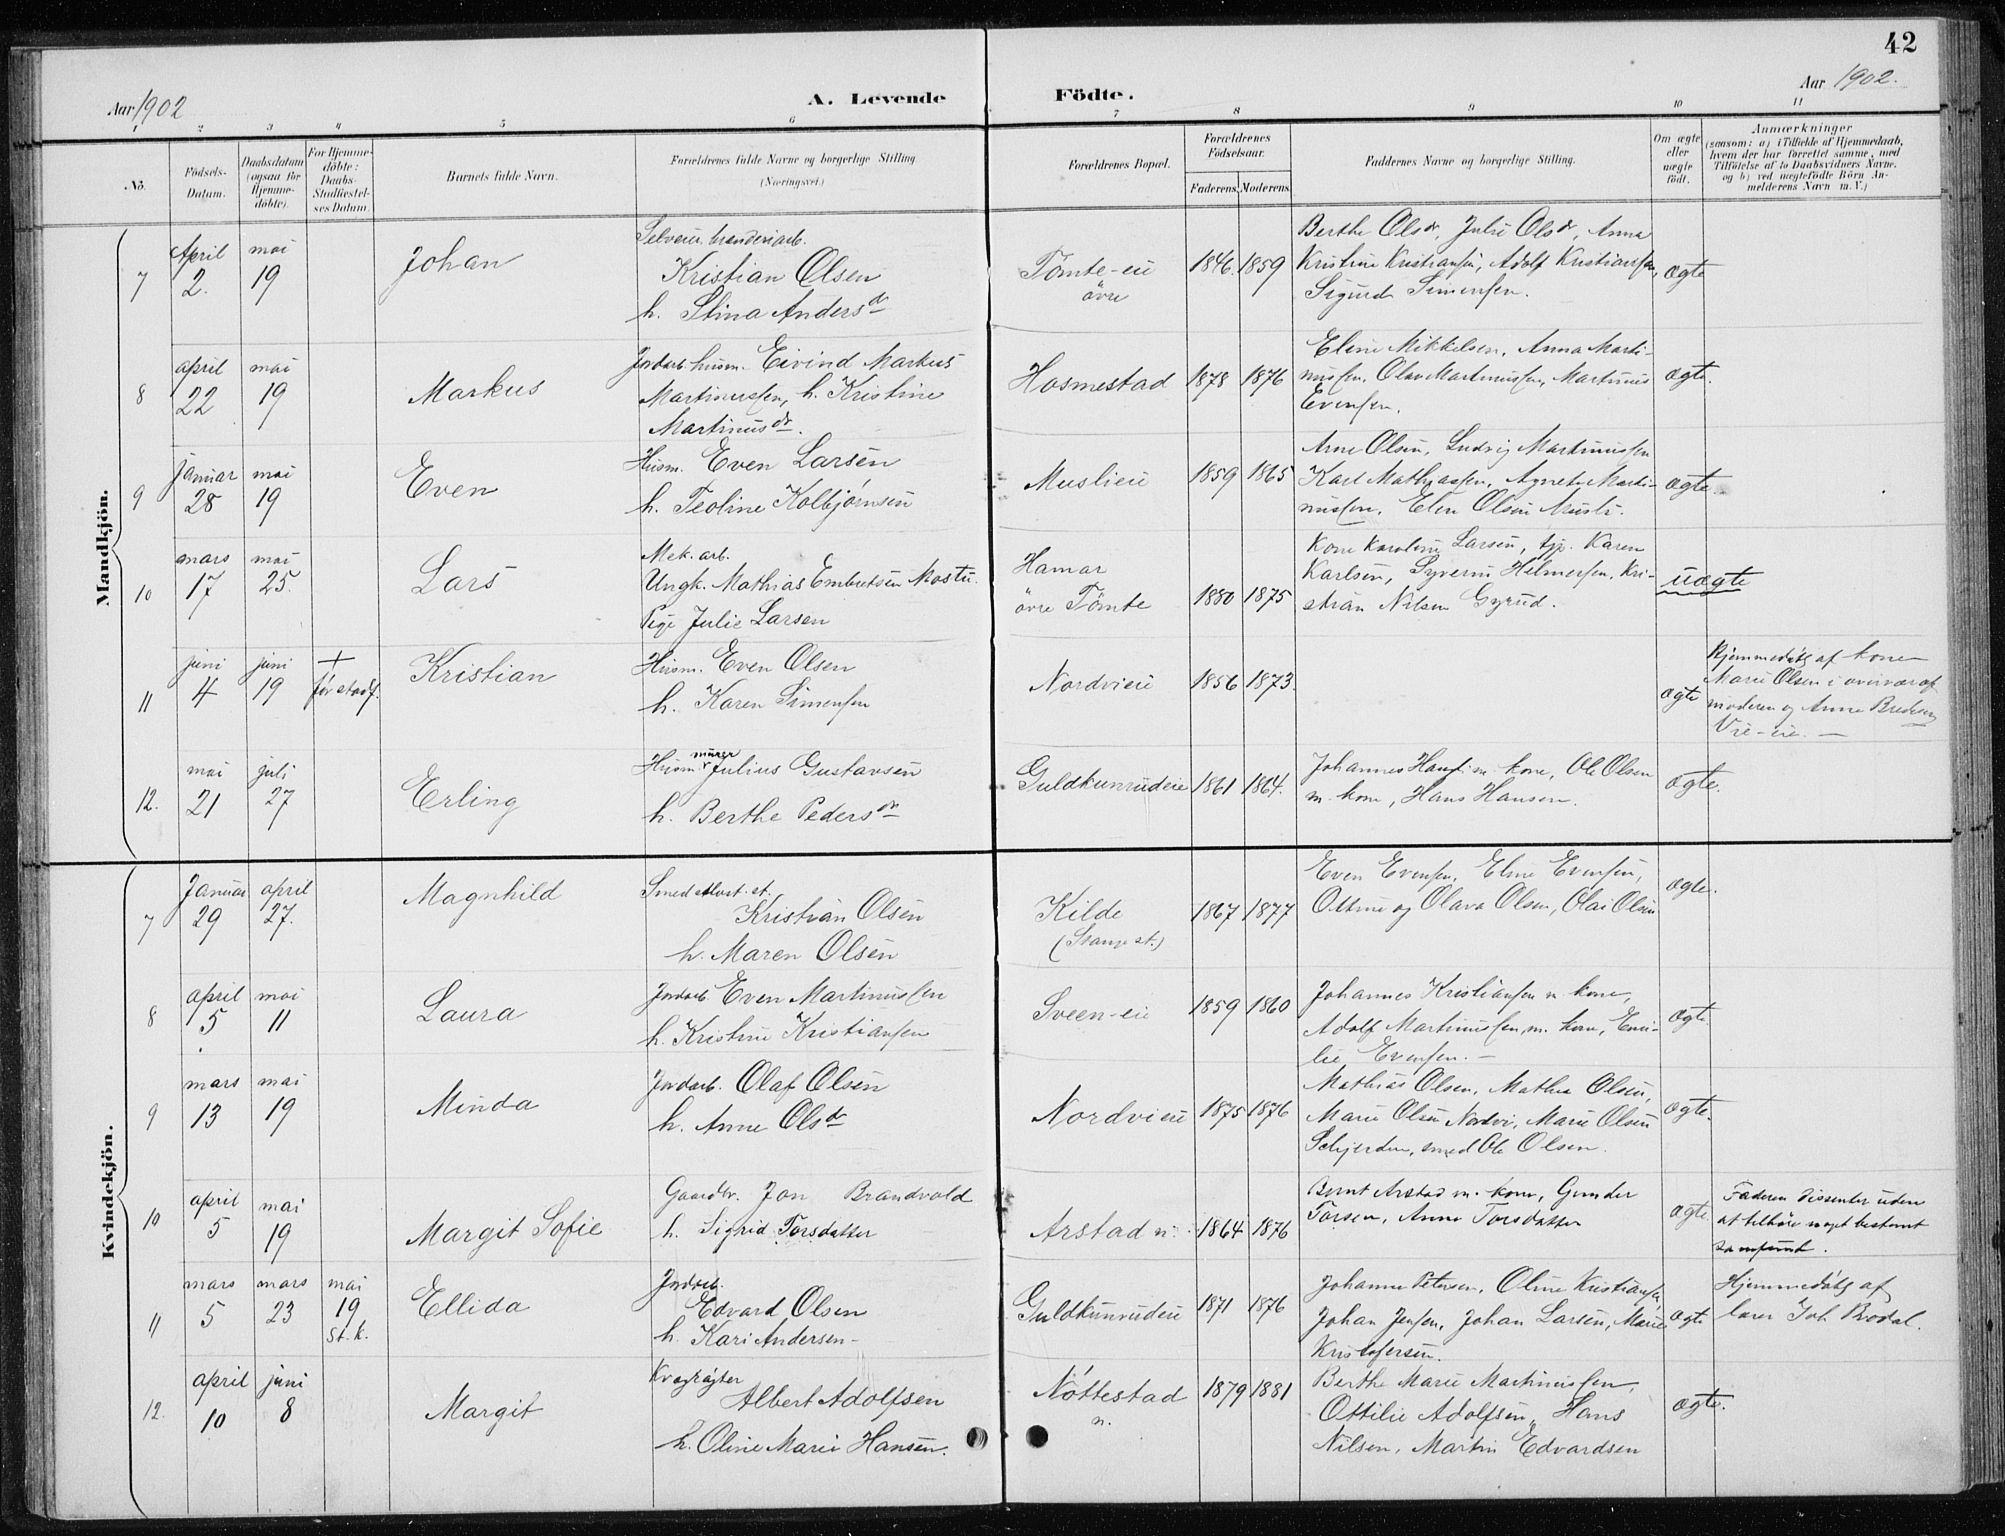 42
Aar 1902
A. Levende
Födte.
Aar 1902.
1 2 3 4 5 6 7 8 9 10 11
No.
Födsels-
Datum.
Daabsdatum
(ogsaa for
Hjemme-
döbte).
For Hjemme-
döbte:
Daabs-
Stadfæstel-
ses Datum.
Barnets fulde Navn.
Forældrenes fulde Navne og borgerlige Stilling
(Næringsvei.)
Forældrenes Bopæl.
Forældrenes
Födselsaar.
Faderens. Moderens.
Faddernes Navne og borgerlige Stilling.
Om ægte
eller
uægte
födt.
Anmærkninger
(saasom: a) i Tilfælde af Hjemmedaab,
hvem der har forrettet samme, med
Tilföielse af to Daabsvidners Navne,
og b) ved uægtefödte Börn An-
melderens Navn m. V.)
Mandkjön.
7
April
2.
mai
19
Johan
Selveier
Kristian Olsen
h. Stina Andersdr
Tömte-eie
övre
1846. 1859
Berthe Olsdr, Julie Olsdr, Anna
Kristine Kristiansen, Adolf Kristiansen,
Sigurd Simensen.
ægte
8
april
22
mai
19
Markus
Jordarb. husm. Eivind Markus
Martinussen, h. Kristine
Martinusdr.
Hosmestad
1878 1876
Eline Mikkelsen, Anna Marti-
nussen, Olav Martinussen, Martinus
Evensen.
ægte.
9
januar
28
mai
19
Even
Husm. Even Larsen
h. Teoline Kolbjørnsen
Muslieie
1859 1865
Arne Olsen, Ludvig Martinussen
Karl Mathiassen, Agnete Marti-
nussen, Elen Olsen Musli.
ægte.
10
mars
17
mai
25.
Lars
Mek. arb.
Ungk. Mathias Embretsen Mostu.
Pige Julie Larsen
Hamar
övre Tömte
1880 1875
Kone Karoline Larsen, tjp. Karen
Karlsen, Syverin Helmersen, Kri-
stian Nilsen Gyrud.
uægte
11
juni
4
juni
19
+
för stadf.
Kristian
Husm. Even Olsen
h. Karen Simensen
Nordvieie
1856 1873.
ægte
Hjemmedöbt af kone
Marie Olsen i overvær af
moderen og Anne Bredesen
Vie-eie.
12.
mai
21
juli
27
Erling
Husm. murer Julius Gustavsen
h. Berthe Pedersdr
Guldkunrudeie
1861 1864.
Johannes Hans. m. kone, Ole Olsen
m. kone, Hans Hansen.
ægte.
Kvindekjön.
7
Januar
29
april
27.
Magnhild
Kristian Olsen
h. Maren Olsen
Kilde
(Stange st.)
1867 1877
Even Evensen, Eline Evensen,
Oline og Olava Olsen, Olai Olsen
ægte.
8
april
5
mai
11
Laura
Jordarb. Even Martinussen
h. Kristine Kristiansen
Sveen-eie
1859 1860
Johannes Kristiansen m. kone,
Adolf Martinussen m. kone, Emi-
lie Evensen.
ægte.
9
mars
13
mai
19
Minda
Jordarb. Olaf Olsen
h. Anne Olsdr
Nordvieie
1875 1876
Mathias Olsen, Mathea Olsen,
Marie Olsen Nordvi, Marie Olsen
Schjerden, smed Ole Olsen.
ægte.
10
april
5
mai
19
Margit Sofie
Gaardbr. Jon Brandvold
h. Sigrid Torsdatter
Arstad n.
1864 1876
Bernt Arstad m. kone, Gunder
Torsen, Anne Torsdatter
ægte.
Faderen dissenter uden
at tilhöre noget bestemt
samfund.
11
mars
5
mars
23
mai
19
st. k.
Ellida
Jordarb.
Edvard Olsen
h. Kari Andersen
Guldkunrudeie
1871 1876
Johanne Petersen, Oline Kristiansen,
Johan Jensen, Johan Larsen, Marie
Kristofersen.
ægte
Hjemmedöbt af
lærer Joh. Brodal.
12.
april
10
juni
8
Margit
Kvægrögter
Albert Adolfsen
h. Oline Marie Hansen.
Nöttestad
n.
1879 1881
Berthe Marie Martinussen,
Ottilie Adolfsen, Hans
Nilsen, Martin Edvardsen
ægte.